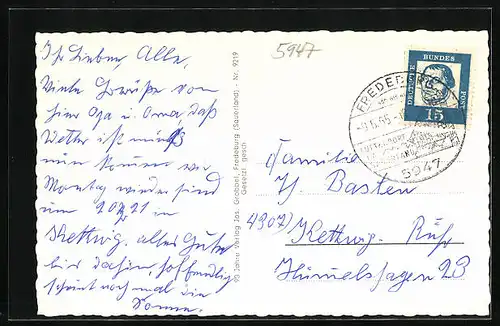 Ihr Lieben, Alle,
Viele Grüße von
hier Opa und Oma, daß
Wetter ist
nun kommen wir
Montag wieder sind
um 20,21 in
Kettwig. alles Gute
bis dahin, hoffendlig
scheint noch mal die
Sonne.
50 Jahre Verlag Jos. Grobbel, Fredeburg (Sauerland) - Nr. 9219
Gesetzl. gesch.
5947
FREDEBURG
-9.5.65
LUFTKURORT
5947
DEUTSCHE BUNDESPOST
15
Familie
H. Basten
4307) Kettwig. Ruhr
Himmelshagen 23